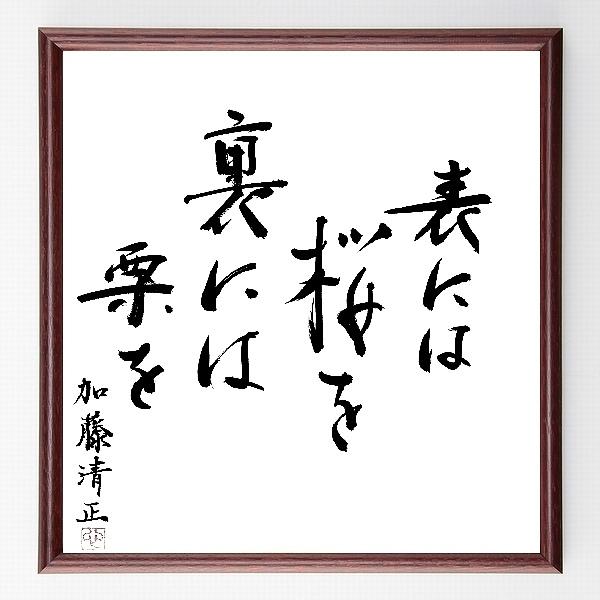 表には
桜を
裏には
栗を
加藤清正